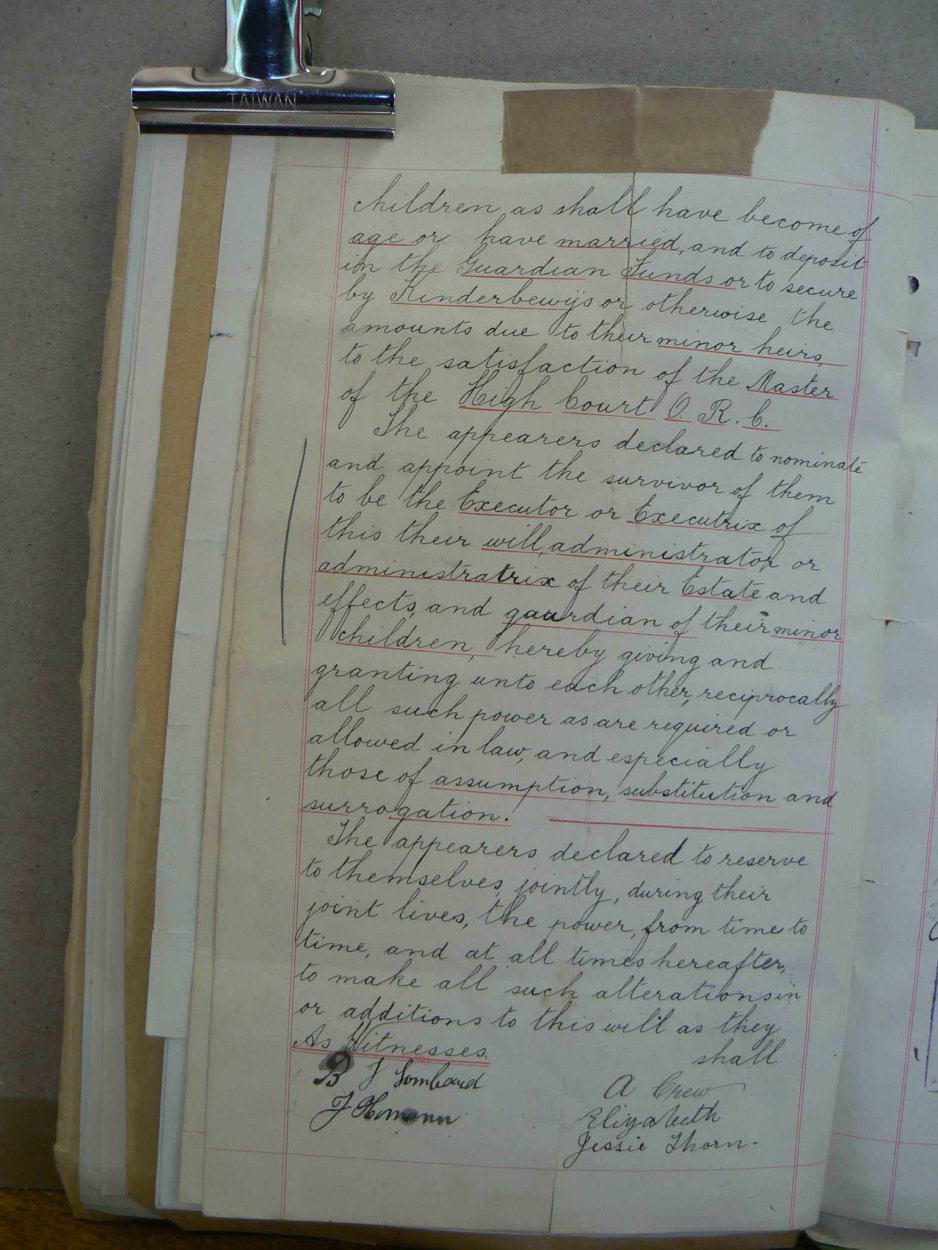 TAIWAN
children, as shall have become of
age or have married, and to deposit
in the Guardian Funds or to secure
by Kinderbewijs or otherwise the
amounts due to their minor heirs,
to the satisfaction of the Master
of the High Court O. R. C.
The appearers declared to nominate
and appoint the survivor of them
to be the Executor or Executrix of
this their will, administrator or
administratrix of their Estate and
effects, and gaurdian of their minor
children, hereby giving and
granting unto each other, reciprocally
all such power as are required or
allowed in law, and especially
those of assumption, substitution and
surrogation.
The appearers declared to reserve
to themselves jointly, during their
joint lives, the power, from time to
time, and at all times hereafter,
to make all such alterations in
or additions to this will as they
shall
As Witnesses.
B J Lombard
A Crew
Elizabeth
Jessie Thorn.